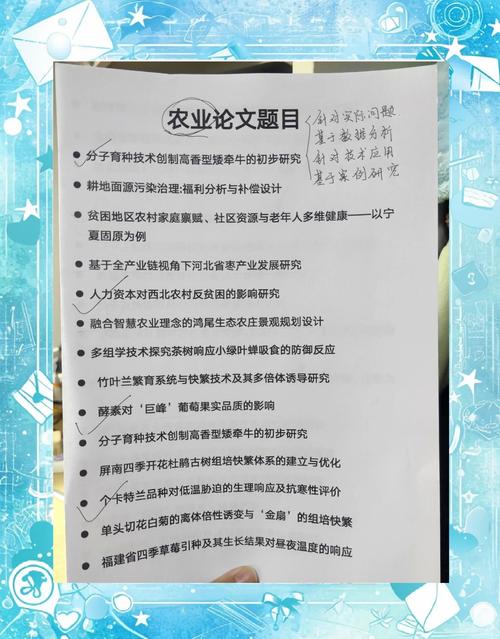 农业论文题目
针对实际问题
基于数据分析
针对技术应用
基于案例研究
分子育种技术创制高香型矮牵牛的初步研究
耕地面源污染治理:福利分析与补偿设计
贫困地区农村家庭禀赋、社区资源与老年人多维健康——以宁
夏固原为例
基于全产业链视角下河北省枣产业发展研究
人力资本对西北农村反贫困的影响研究
融合智慧农业理念的鸿尾生态农庄景观规划设计
多组学技术探究茶树响应小绿叶蝉吸食的防御反应
竹叶兰繁育系统与快繁技术及其多倍体诱导研究
酵素对‘巨峰’葡萄果实品质的影响
分子育种技术创制高香型矮牵牛的初步研究
屏南四季开花杜鹃古树组培快繁体系的建立与优化
个卡特兰品种对低温胁迫的生理响应及抗寒性评价
单头切花白菊的离体倍性诱变与‘金扇’的组培快繁
福建省四季草莓引种及其生长结果对昼夜温度的响应